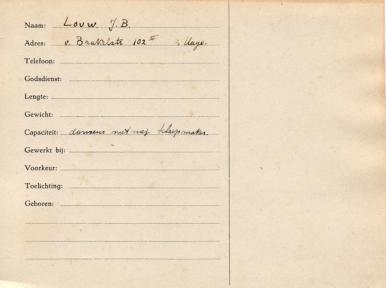 Naam: Louw. J.B.
Adres: v. 102 II s Hage.
Telefoon:
Godsdienst:
Lengte:
Gewicht:
Capaciteit: met
Gewerkt bij:
Voorkeur:
Toelichting:
Geboren: